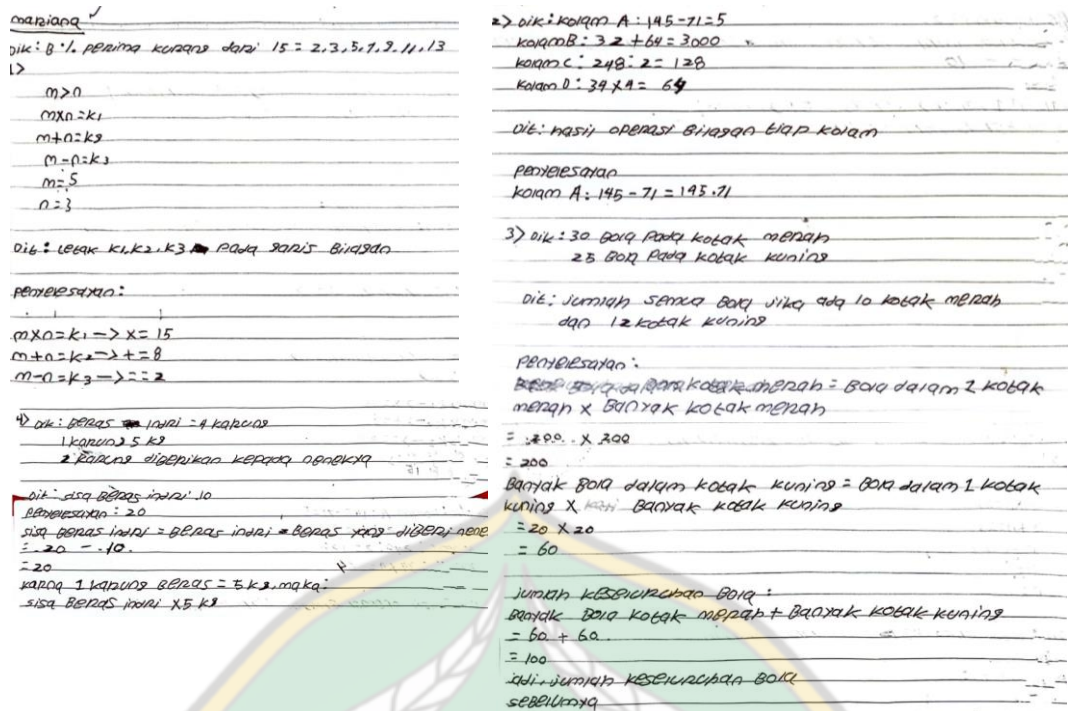 mariana
Dik: B.il. perima kurang dari 15 = 2,3,5,7,9,11,13
1>
m>n
mxn=k1
m+n=k2
m-n=k3
m=5
n=3
Dit: letak k1,k2,k3 pada garis Bilagan
penyelesayan:
mxn=k1 -> x= 15
m+n=k2 -> += 8
m-n=k3 -> -= 2
4) Dik: Beras indri = 4 karung
1 karung 5 kg
2 karung diberikan kepada neneknya
Dit: sisa Beras indri 10
penyelesayan: 20
sisa beras indri = Beras indri - Beras yang diberi nene
= 20 - 10.
= 20
karna 1 karung Beras = 5 kg. maka:
sisa Beras indri x5 kg
2> Dik: kolam A: 145-71=5
kolam B: 32+64=3000
kolam C: 248:2=128
kolam D: 34x4= 64
Dit: hasil operasi Bilagan tiap kolam
penyelesayan
kolam A: 145-71=145.71
3> Dik: 30 Bola pada kotak merah
25 Bola pada kotak kuning
Dit: jumlah semua Bola jika ada 10 kotak merah
dan 12 kotak kuning
penyelesayan:
kotak merah = Bola dalam 1 kotak
merah x Banyak kotak merah
= 200.. x 200
= 200
Banyak Bola dalam kotak kuning = Bola dalam 1 kotak
kuning x Banyak kotak kuning
= 20 x 20
= 60
jumlah keseluruhan Bola:
Banyak Bola kotak merah + Banyak kotak kuning
= 60 + 60.
= 100
jadi, jumlah keseluruhan Bola
sebelumya